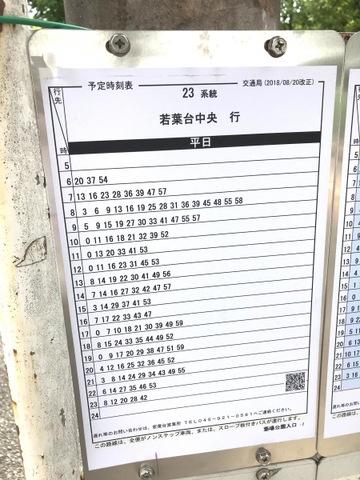 予定時刻表 23 系統 交通局 (2018/08/20改正)
行先 若葉台中央 行
時 平日
5
6 20 37 54
7 13 16 23 28 36 39 47 57
8 3 6 9 13 16 19 25 28 31 36 39 45 48 55 58
9 5 9 15 19 27 30 33 41 47 55 57
10 0 11 16 18 21 32 39 52
11 0 13 20 33 41 53
12 0 11 16 23 31 45 53
13 8 14 19 22 30 41 49 56
14 7 14 16 27 32 42 47 57
15 3 14 29 37 41 53
16 7 17 22 33 43 47
17 0 7 10 18 21 30 39 49 59
18 8 15 24 33 35 44 49 52
19 0 9 17 20 29 38 47 51 59
20 4 12 16 25 32 36 45 52
21 3 8 14 24 29 34 43 49 55
22 6 14 27 35 46 53
23 8 12 20 28 42
24
遅れ等のお問い合わせは、若葉台営業所 TEL 045-921-0591へご連絡ください。
この路線は、全便がノンステップ車両、または、スロープ板付きバスが運行します。
公園入口